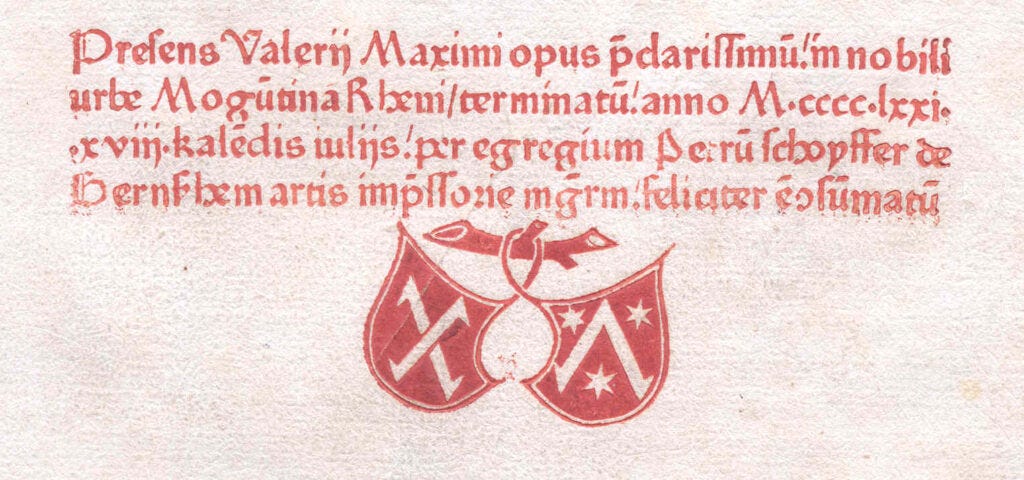 Presens Valerij Maximi opus p̄clarissimū! in nobili
urbe Mogūtina Rheni/terminatū! anno M·cccc·lxxi·
·xviij·kalēdis iulijs! per egregium Petrū schoyffer de
Gernsshem artis imp̄ssorie mḡrm! feliciter ē ↄsūmatū